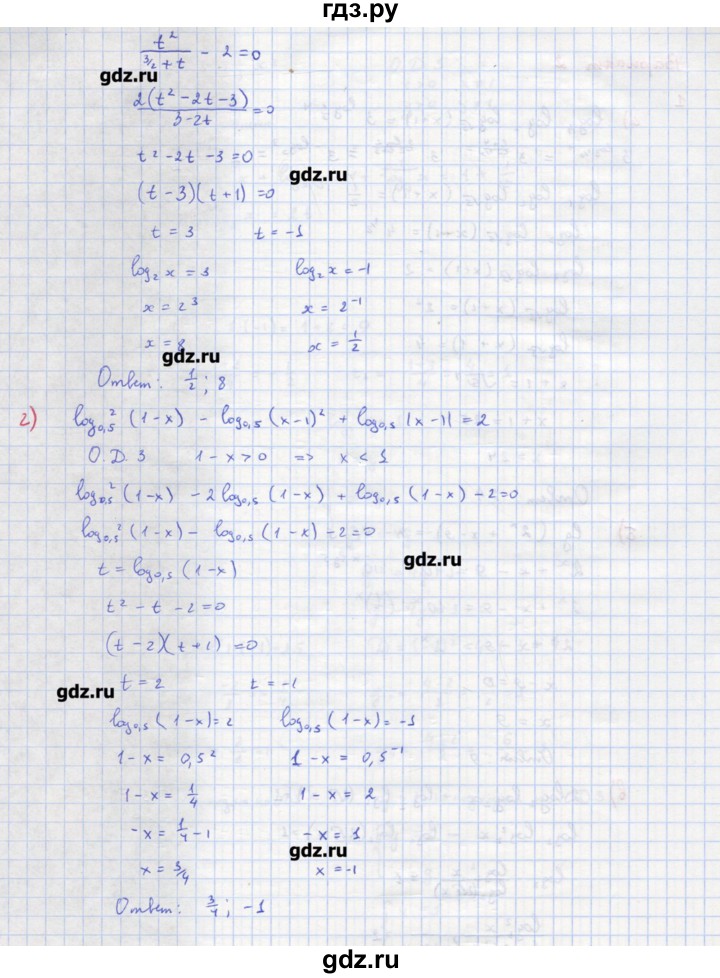 гдз.ру
t²/(3/2 + t) - 2 = 0
gdz.ru
2(t² - 2t - 3)/(3 - 2t) = 0
t² - 2t - 3 = 0
gdz.ru
(t - 3)(t + 1) = 0
t = 3 t = -1
log₂ x = 3 log₂ x = -1
x = 2³ x = 2⁻¹
x = 8 x = 1/2
gdz.ru
Ответ: 1/2 ; 8
2) log²₀,₅ (1 - x) - log₀,₅ (x - 1)² + log₀,₅ |x - 1| = 2
О.Д.З 1 - x > 0 => x < 1
log²₀,₅ (1 - x) - 2 log₀,₅ (1 - x) + log₀,₅ (1 - x) - 2 = 0
log²₀,₅ (1 - x) - log₀,₅ (1 - x) - 2 = 0
gdz.ru
t = log₀,₅ (1 - x)
t² - t - 2 = 0
(t - 2)(t + 1) = 0
gdz.ru
t = 2 t = -1
log₀,₅ (1 - x) = 2 log₀,₅ (1 - x) = -1
1 - x = 0,5² 1 - x = 0,5⁻¹
1 - x = 1/4 1 - x = 2
-x = 1/4 - 1 -x = 1
gdz.ru
x = 3/4 x = -1
Ответ: 3/4 ; -1
гдз.ру